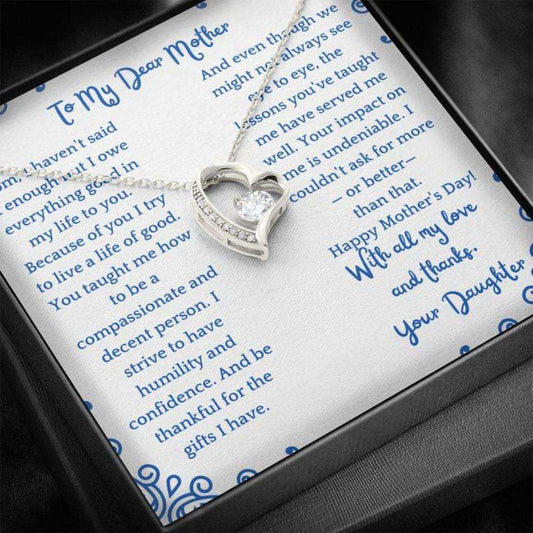 To My Dear Mother
haven't said
enough, but I owe
everything good in
my life to you.
Because of you I try
to live a life of good.
You taught me how
to be a
compassionate and
decent person. I
strive to have
humility and
confidence. And be
thankful for the
gifts I have.
And even though we
might not always see
eye to eye, the
lessons you've taught
me have served me
well. Your impact on
me is undeniable. I
couldn't ask for more
—or better—
than that.
Happy Mother's Day!
With all my love
and thanks,
Your Daughter